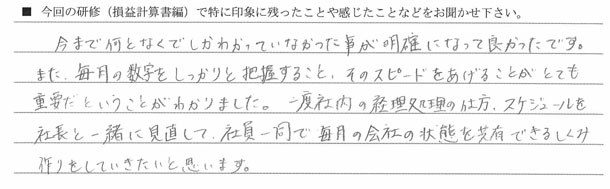 ■ 今回の研修（損益計算書編）で特に印象に残ったことや感じたことなどをお聞かせ下さい。
今まで何となくでしかわかっていなかった事が明確になって良かったです。
また、毎月の数字をしっかりと把握すること、そのスピードをあげることがとても
重要だということがわかりました。一度社内の経理処理の仕方、スケジュールを
社長と一緒に見直して、社員一同で毎月の会社の状態を共有できるしくみ
作りをしていきたいと思います。